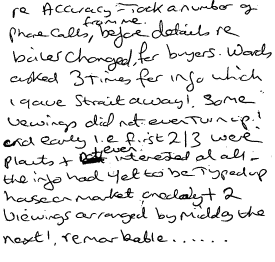 re Accuracy - Took a number of
from me.
phone calls, before details re
boiler changed, for buyers. Words
asked 3 times for info which
I gave strait away!. Some
viewings did not even turn up!
and early i.e first 2/3 were
plants + even interested at all -
the info had yet to be typed up
house on market, one day + 2
viewings arranged by midday the
next!, remarkable......